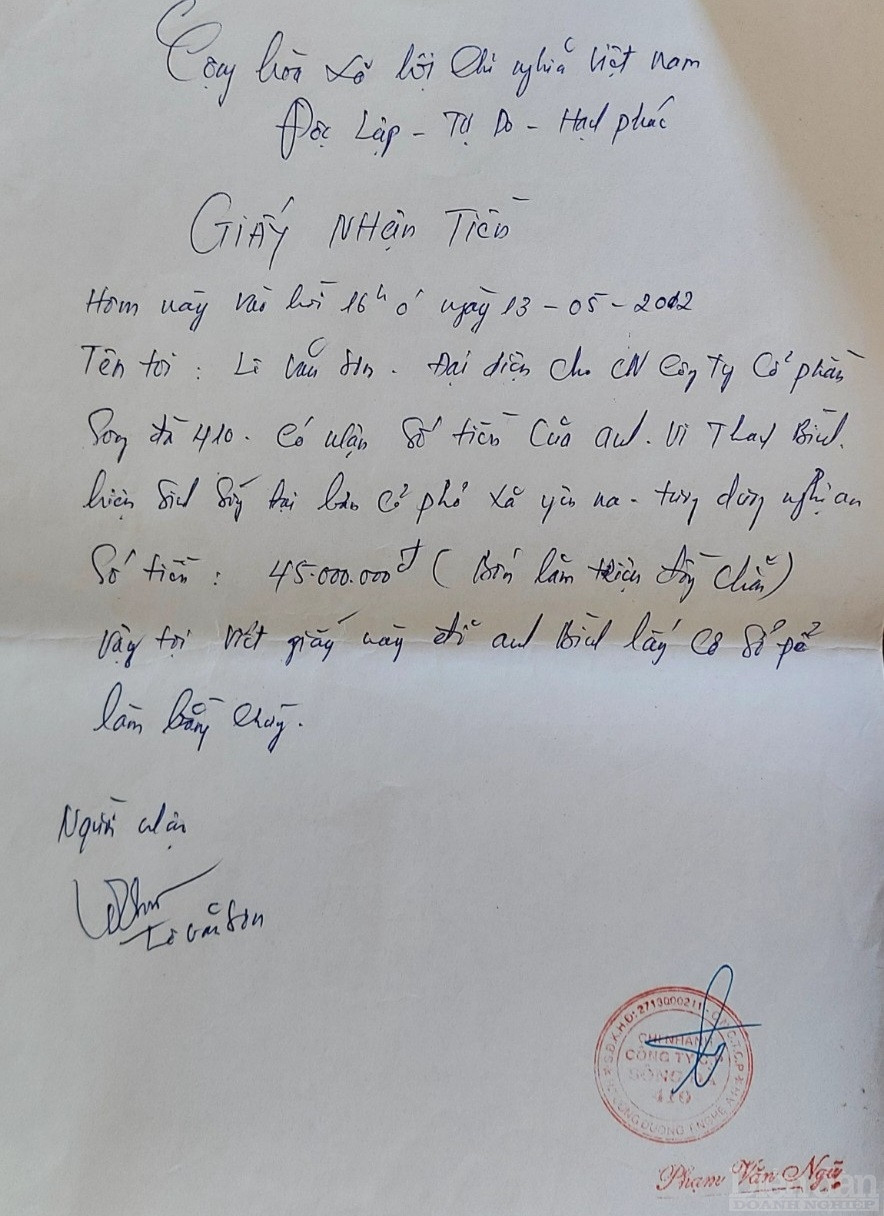 Cộng hòa xã hội Chủ nghĩa Việt Nam
Độc Lập - Tự Do - Hạnh phúc
GIẤY NHẬN TIỀN
Hôm nay vào hồi 16h 0' ngày 13-05-2012
Tên tôi : Lê Văn Sơn. Đại diện cho CN Công Ty Cổ phần
Sông đà 410. Có nhận Số tiền Của anh. Vi Thanh Bình.
hiện Sinh Sống tại bản Cò phó xã yên na - tương dương nghệ an
Số tiền : 45.000.000đ ( Bốn lăm triệu đồng chẵn )
Vậy tôi viết giấy này để anh Bình lấy cơ sở để
làm bằng chứng.
Người nhận
Lê Văn Sơn
S.Đ.K.H.Đ: 2713000211 - C.T.C.P
CHI NHÁNH
CÔNG TY C.P
SÔNG ĐÀ
410
Phạm Văn Ngữ
Diễn đàn
DOANH NGHIỆP